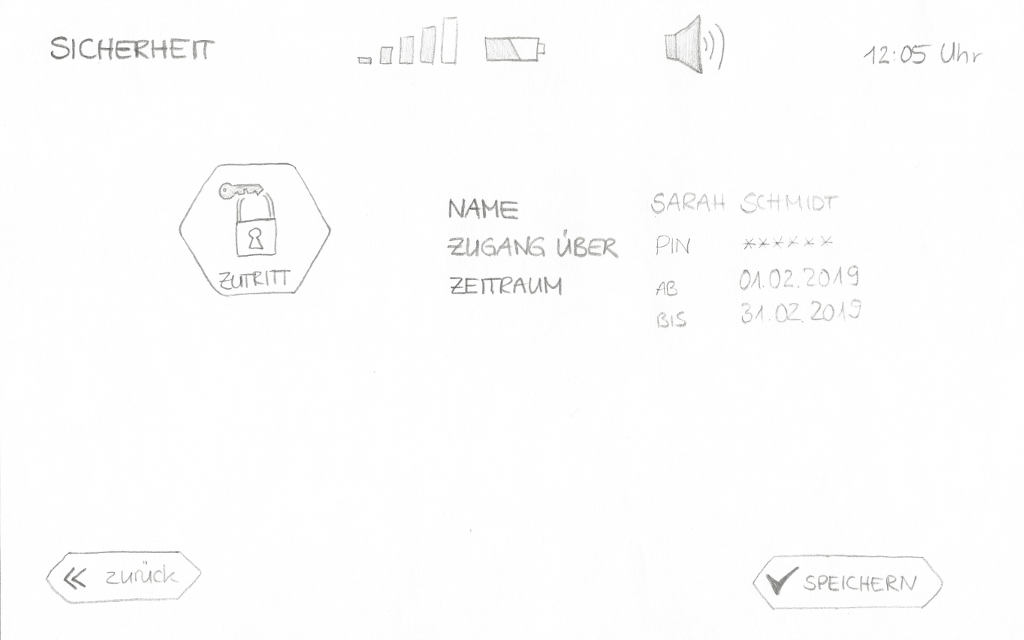 SICHERHEIT
12:05 Uhr
ZUTRITT
NAME SARAH SCHMIDT
ZUGANG ÜBER PIN ******
ZEITRAUM AB 01.02.2019
BIS 31.02.2019
« zurück
✓ SPEICHERN